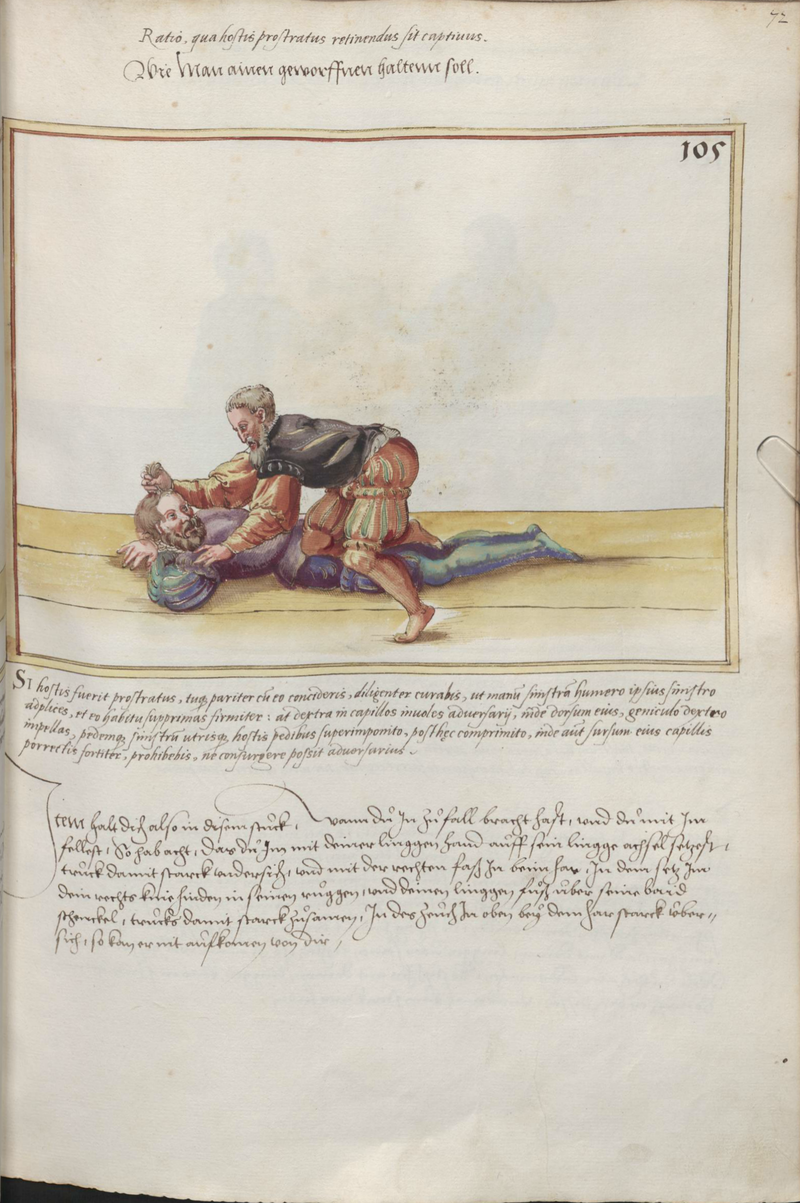 72
Ratio, qua hostis prostratus retinendus sit captiuus.
Wie Man ainen geworffnen haltenn soll.
105
SI hostis fuerit prostratus, tuq; pariter cũ eo concideris, diligenter curabis, ut manũ sinistrã humero ipsius sinistro
adplices, et eo habitu supprimas firmiter: at dextra in capillos inuoles aduersarij, inde dorsum eius, geniculo dextro
impellas, pedemq; sinistrũ utrisq; hostis pedibus superimponito, posthęc comprimito, inde aũt sursum eius capillis
porrectis fortiter, prohibebis, ne consurgere possit aduersarius.
Item halt dich also in disem stuck, wann du In zu fall bracht hast, vnd du mit Im
fellest, So hab acht, das du Im mit deiner linggen hand auff sein lingge achsel setzest,
truck damit starck vndersich, vnd mit der rechten faß In beim har, In dem setz Im
dein rechts knie hinden in seinen ruggen, vnd deinen linggen fuß über seine baid
schenckel, trucks damit starck zusamen, In des zeuch In oben bey dem har starck über„
sich, so kan er nit aufkomen von dir,